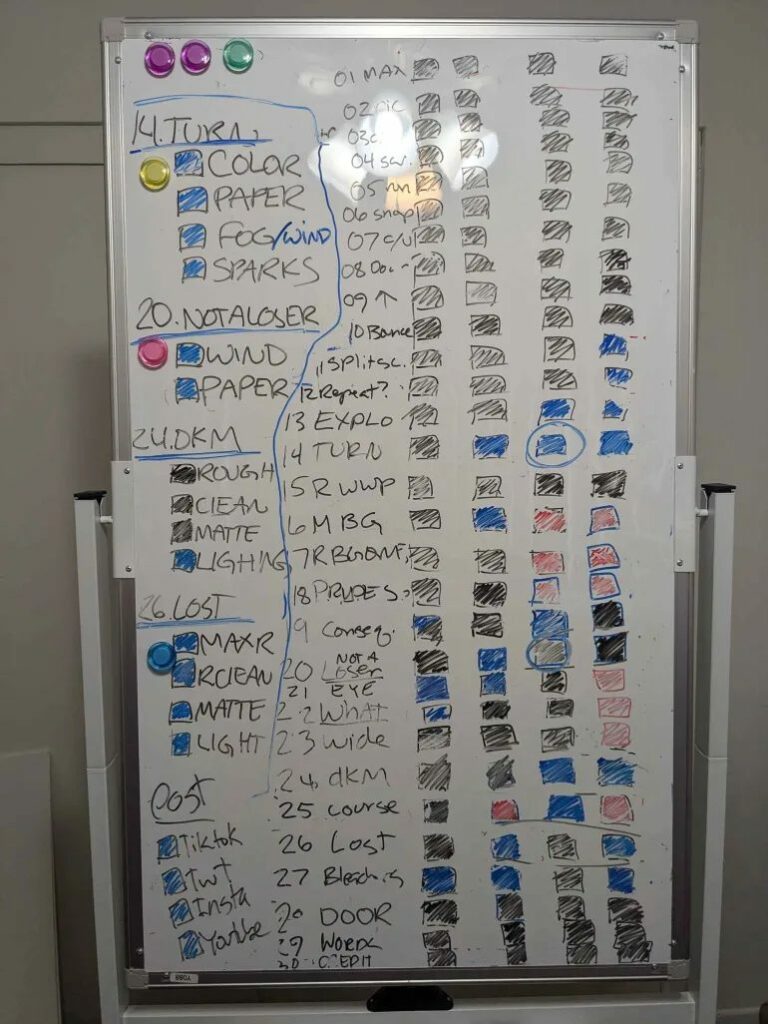 14. TURN
COLOR
PAPER
FOG/WIND
SPARKS
20. NOT A LOSER
WIND
PAPER
24. DKM
ROUGH
CLEAN
MATTE
LIGHING
26. LOST
MAXR
RCLEAN
MATTE
LIGHT
POST
Tiktok
Twt
Insta
Youtube
01 MAX
02 pic
03
04 scr.
05 run
06 snap
07 c/u
08
09 ↑
10 Bounce
11 Splitsc.
12 Repeat?
13 EXPLO
14 TURN
15 R WWP
16 M BG
17 R BG
18
19 Conseq.
20 NOT A LOSER
21 EYE
22 What
23 wide
24 dKM
25 course
26 Lost
27
28 DOOR
29 WORDS
30